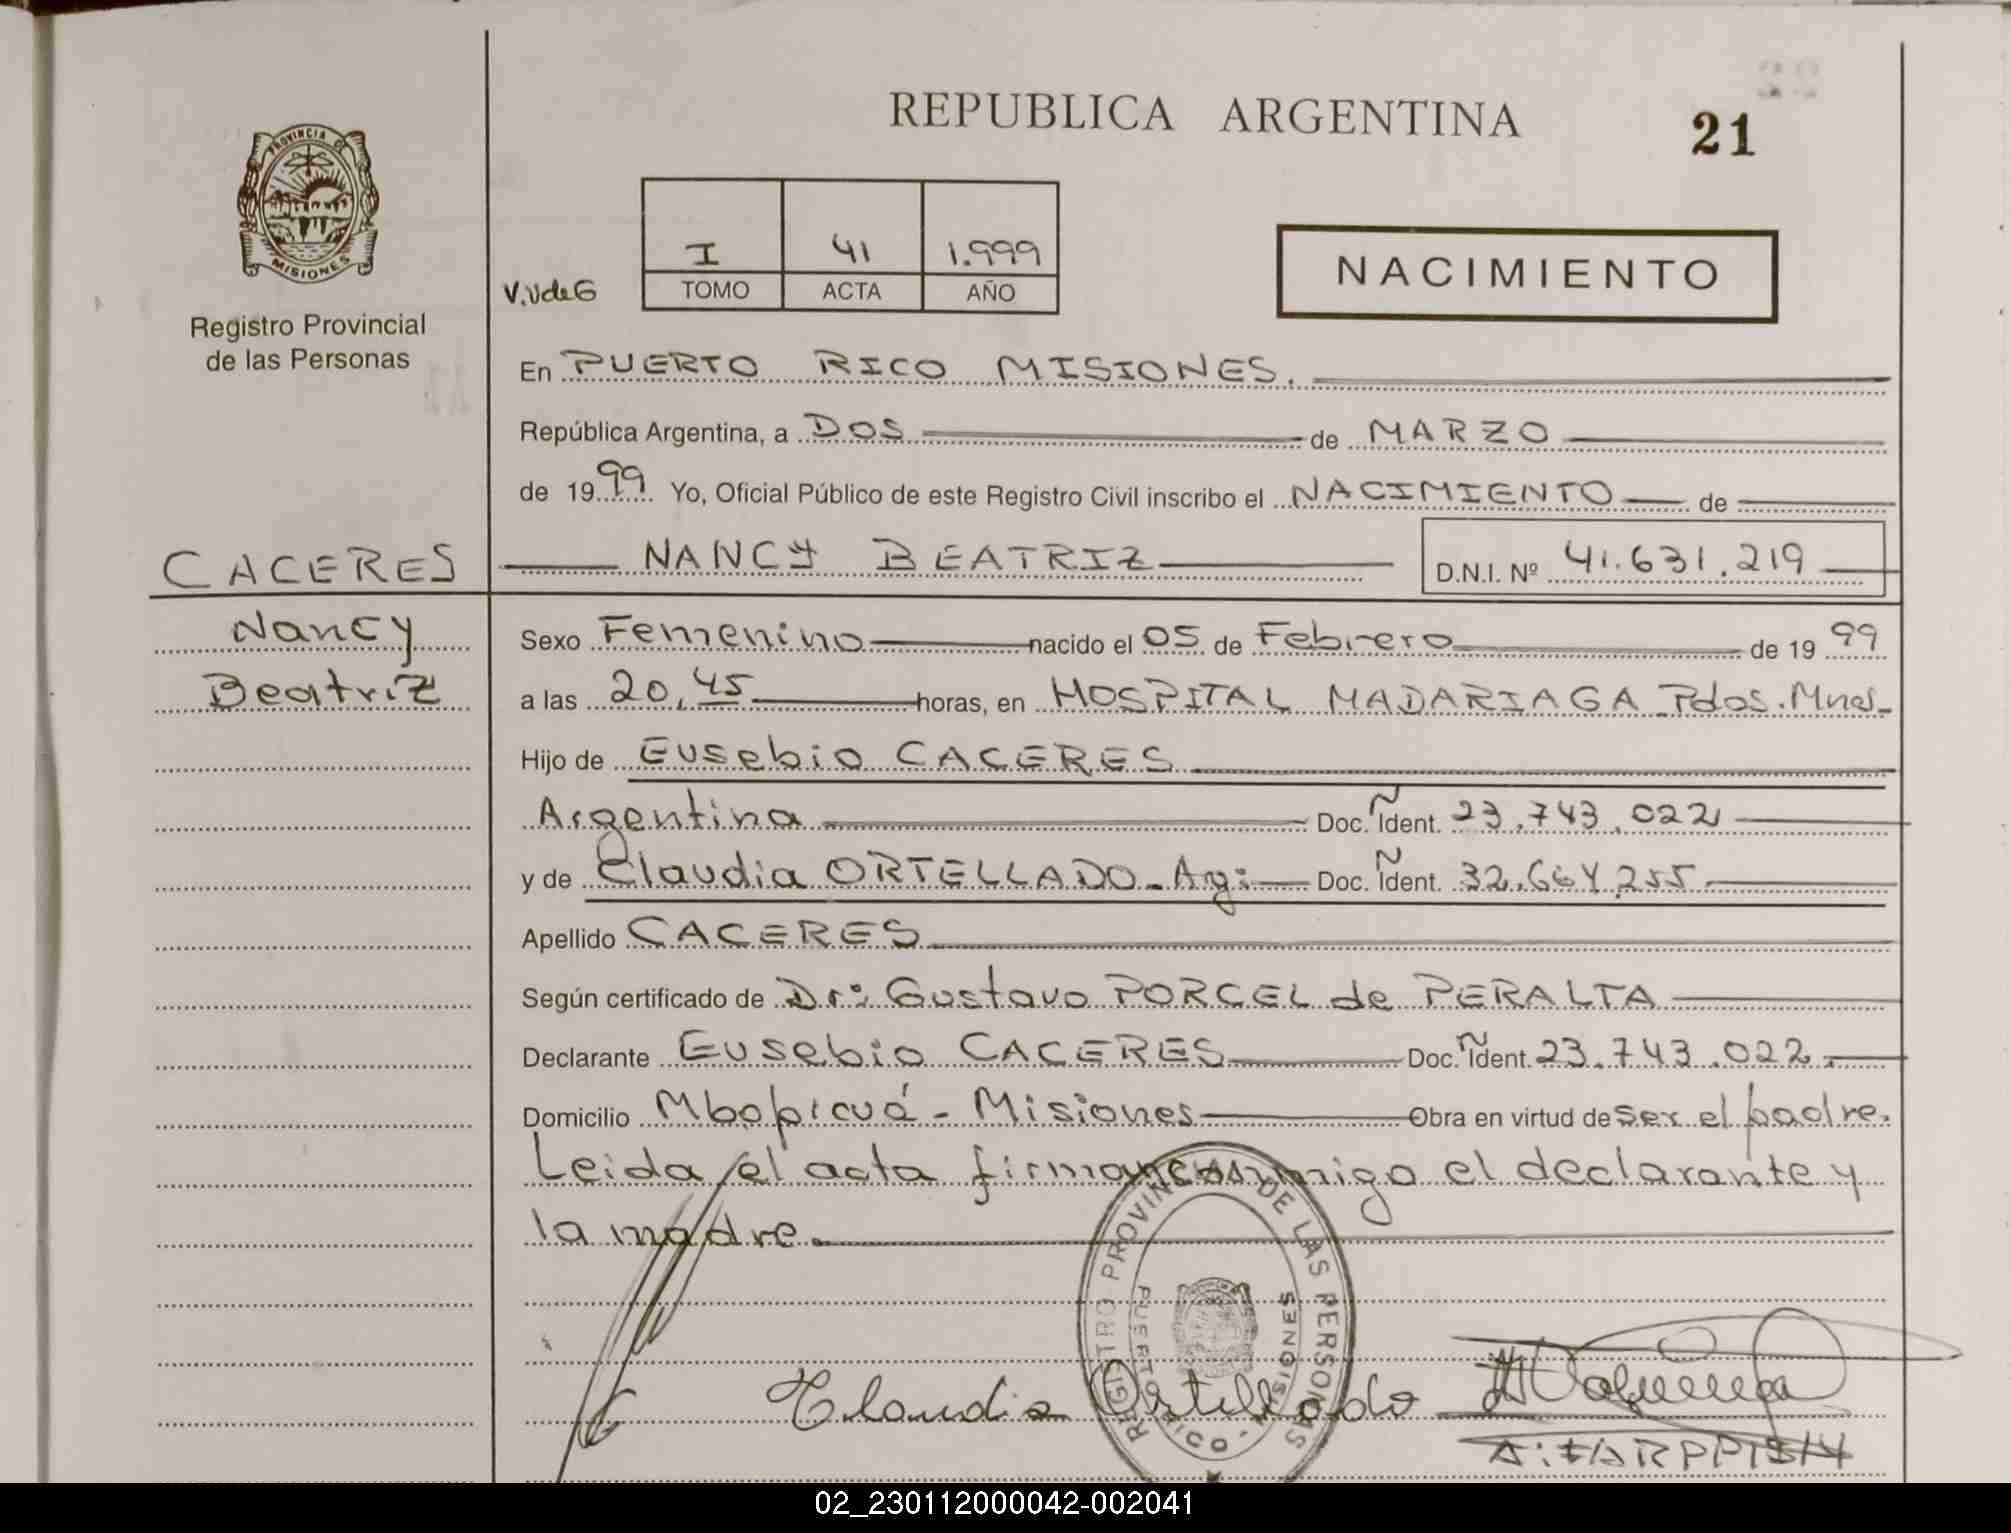 REPUBLICA ARGENTINA
21
PROVINCIA DE
MISIONES
Registro Provincial
de las Personas
V.VdeG
I 41 1.999
TOMO ACTA AÑO
NACIMIENTO
En PUERTO RICO MISIONES.
República Argentina, a DOS de MARZO
de 1999 Yo, Oficial Público de este Registro Civil inscribo el NACIMIENTO de
CACERES
NANCY BEATRIZ D.N.I. Nº 41.631.219
Nancy
Beatriz
Sexo Femenino nacido el 05 de Febrero de 1999
a las 20,45 horas, en HOSPITAL MADARIAGA Pdos. Mnes-
Hijo de Eusebio CACERES
Argentina Doc. Ñ Ident. 23.743.022
y de Claudia ORTELLADO - Arg: Doc. Ñ Ident. 32.664.255
Apellido CACERES
Según certificado de Dr: Gustavo PORCEL de PERALTA
Declarante Eusebio CACERES Doc. Ñ Ident. 23.743.022.-
Domicilio Mbopicuá - Misiones Obra en virtud de ser el padre.
Leida el acta firman conmigo el declarante y
la madre.
REGISTRO PROVINCIAL DE LAS PERSONAS
PUERTO RICO - MISIONES
Claudia Ortellado
02_230112000042-002041